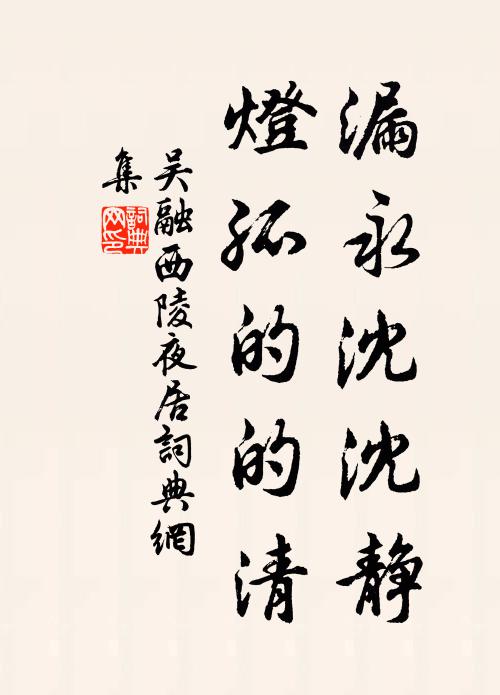 漏永沈沈静
燈孤的的清
吴融西陵夜居詞典網
集
詞典
网印